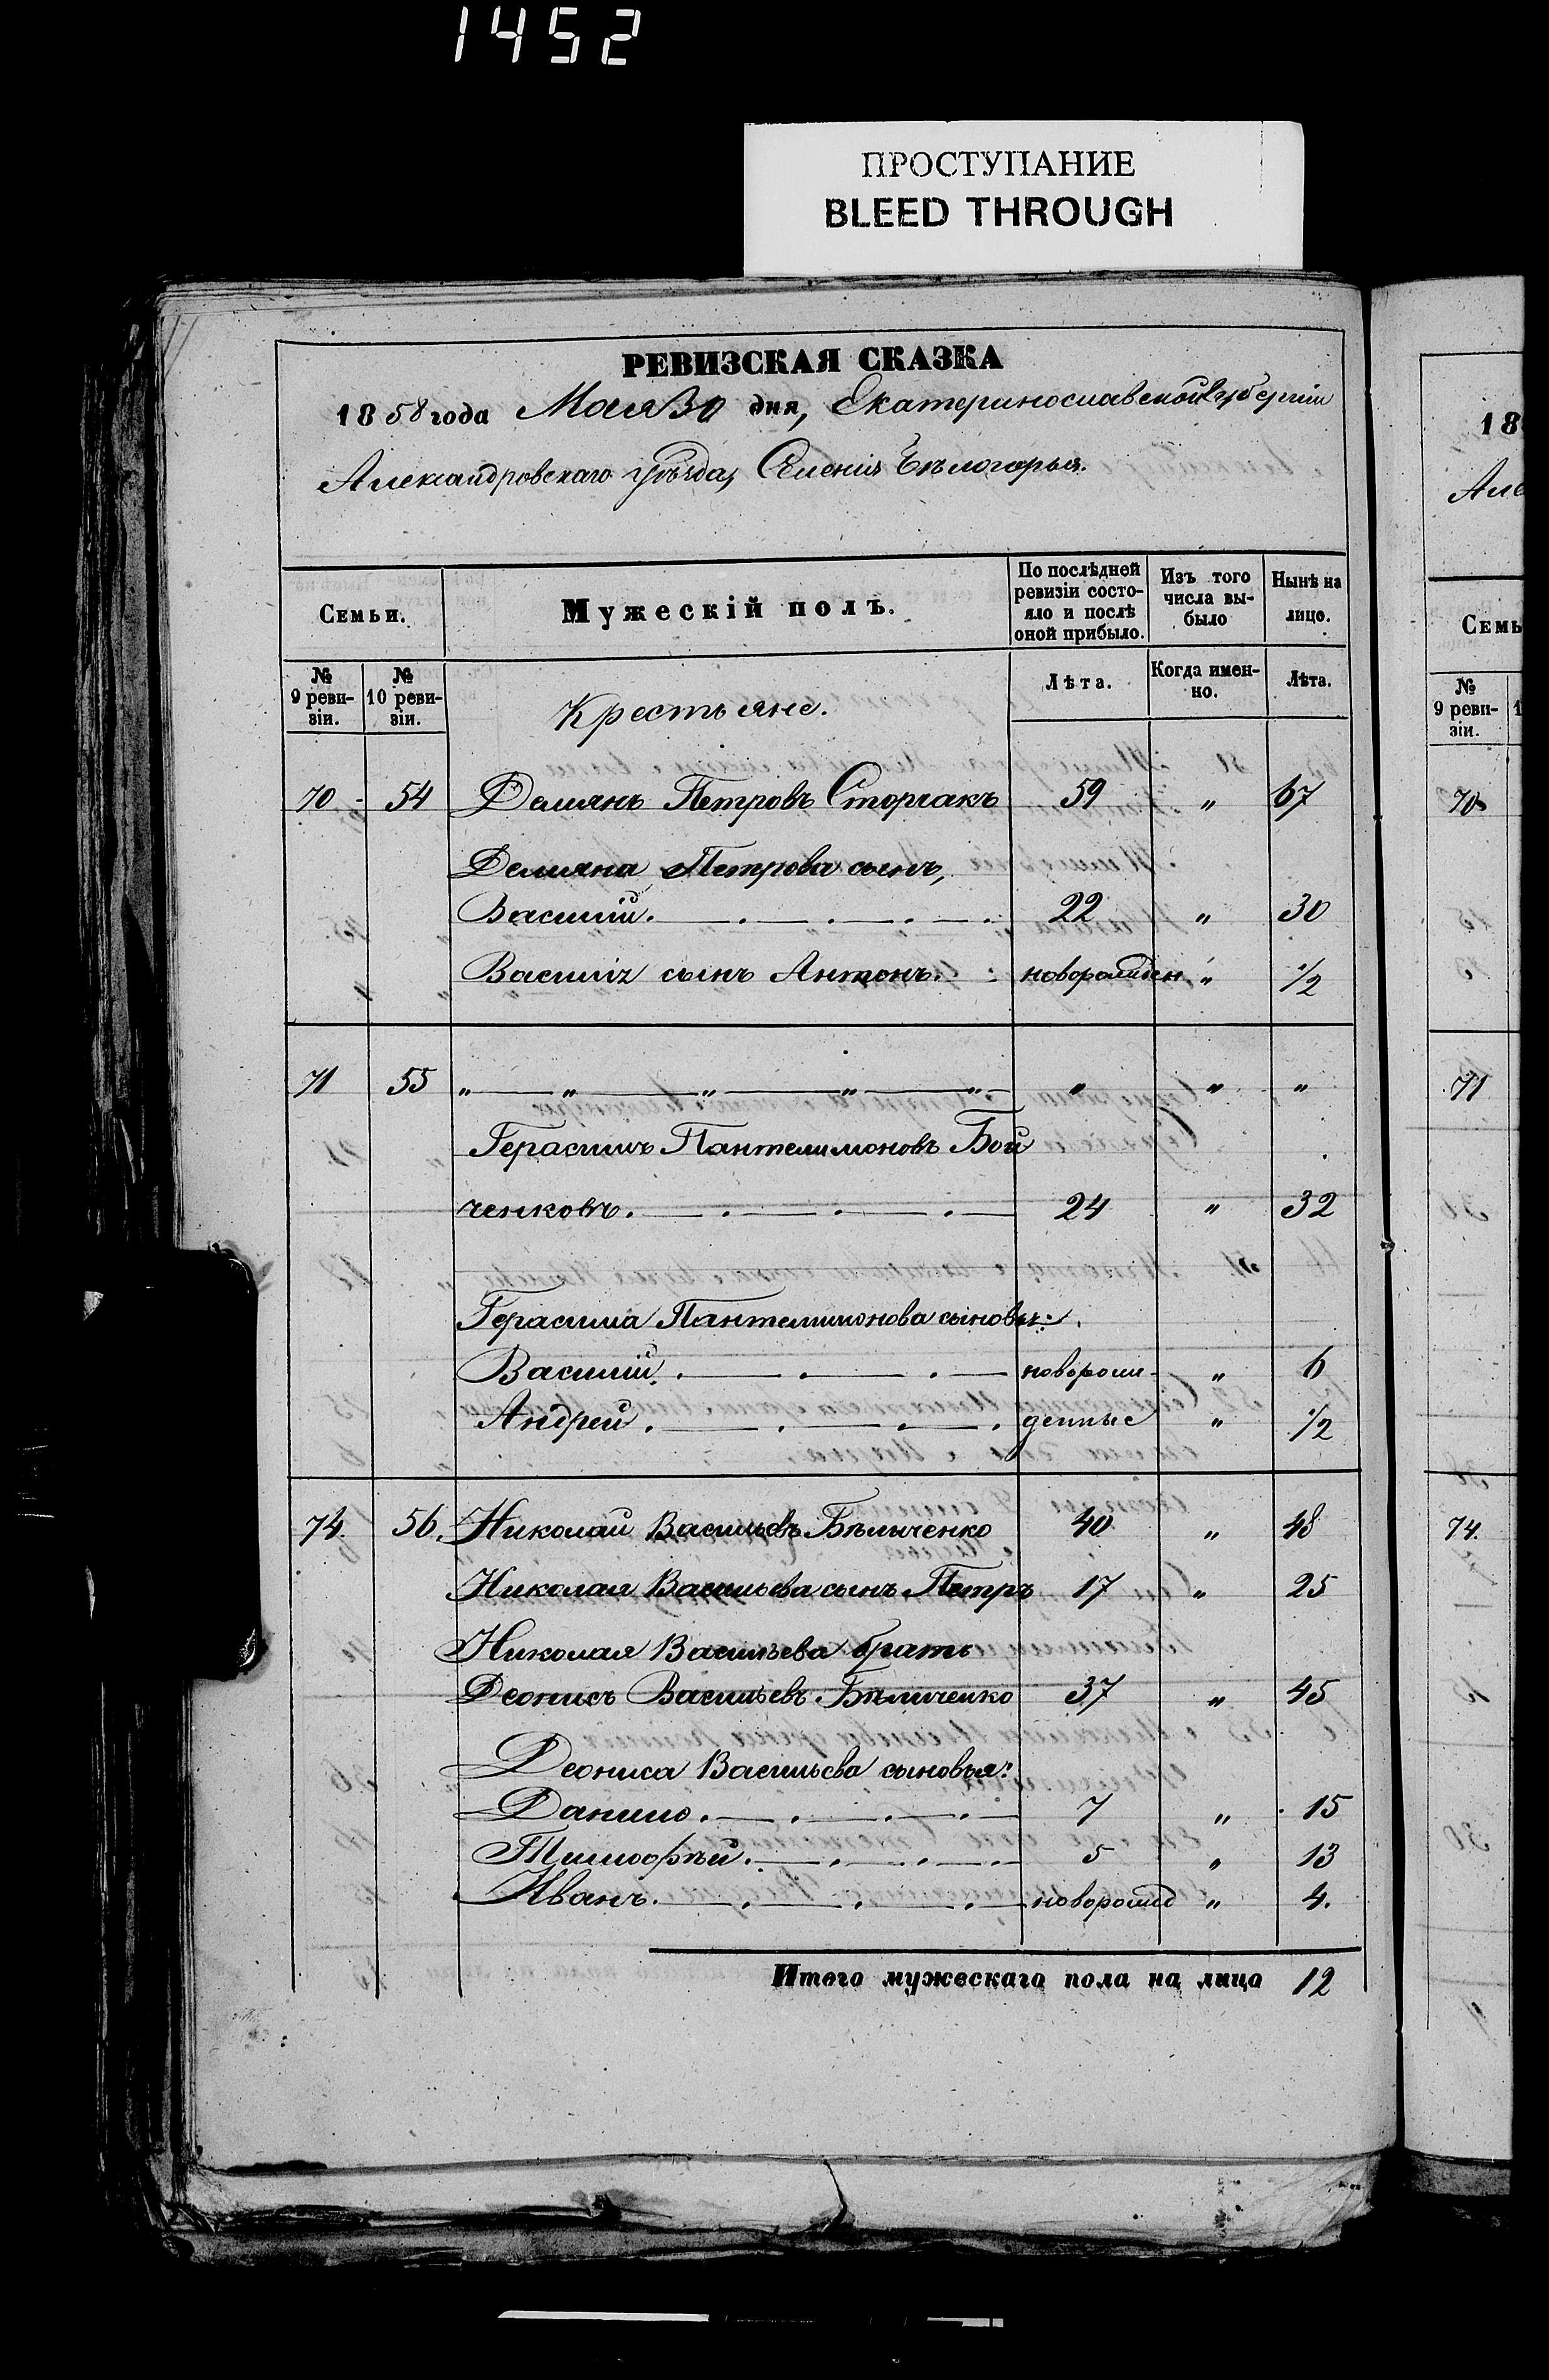 1452
ПРОСТУПАНИЕ
BLEED THROUGH
РЕВИЗСКАЯ СКАЗКА
1858 года Мая 30 дня, Екатеринославской Губерніи
Александровскаго уѣзда, Селенія Бѣлогорья.
Семьи.
Мужескій полъ.
По послѣдней ревизіи состо-
яло и послѣ оной прибыло.
Изъ того числа вы-
было
Нынѣ на лицо.
№ 9 реви-
зіи.
№ 10 реви-
зіи.
Крестьяне.
Лѣта.
Когда имен-
но.
Лѣта.
70 54 Демянъ Петровъ Сторчакъ 59 " 67
Демяна Петрова сынъ,
Василій. 22 " 30
Василія сынъ Антонъ. новорожден " 1/2
71 55 " " " " " " " "
Герасимъ Пантелимоновъ Бой
ченковъ. 24 " 32
Герасима Пантелимонова сыновья:
Василій. новорож- " 6
Андрей. денные " 1/2
74. 56. Николай Васильевъ Бѣличенко 40 " 48
Николая Васильева сынъ Петръ 17 " 25
Николая Васильева братъ
Деонисъ Васильевъ Бѣличенко 37 " 45
Деониса Васильева сыновья:
Данило. 7 " 15
Тимофѣй. 5 " 13
Иванъ. новорожд " 4.
Итого мужескаго пола на лицо 12
18
Але
Семь
№ 9 реви-
зіи.
70
71
74.